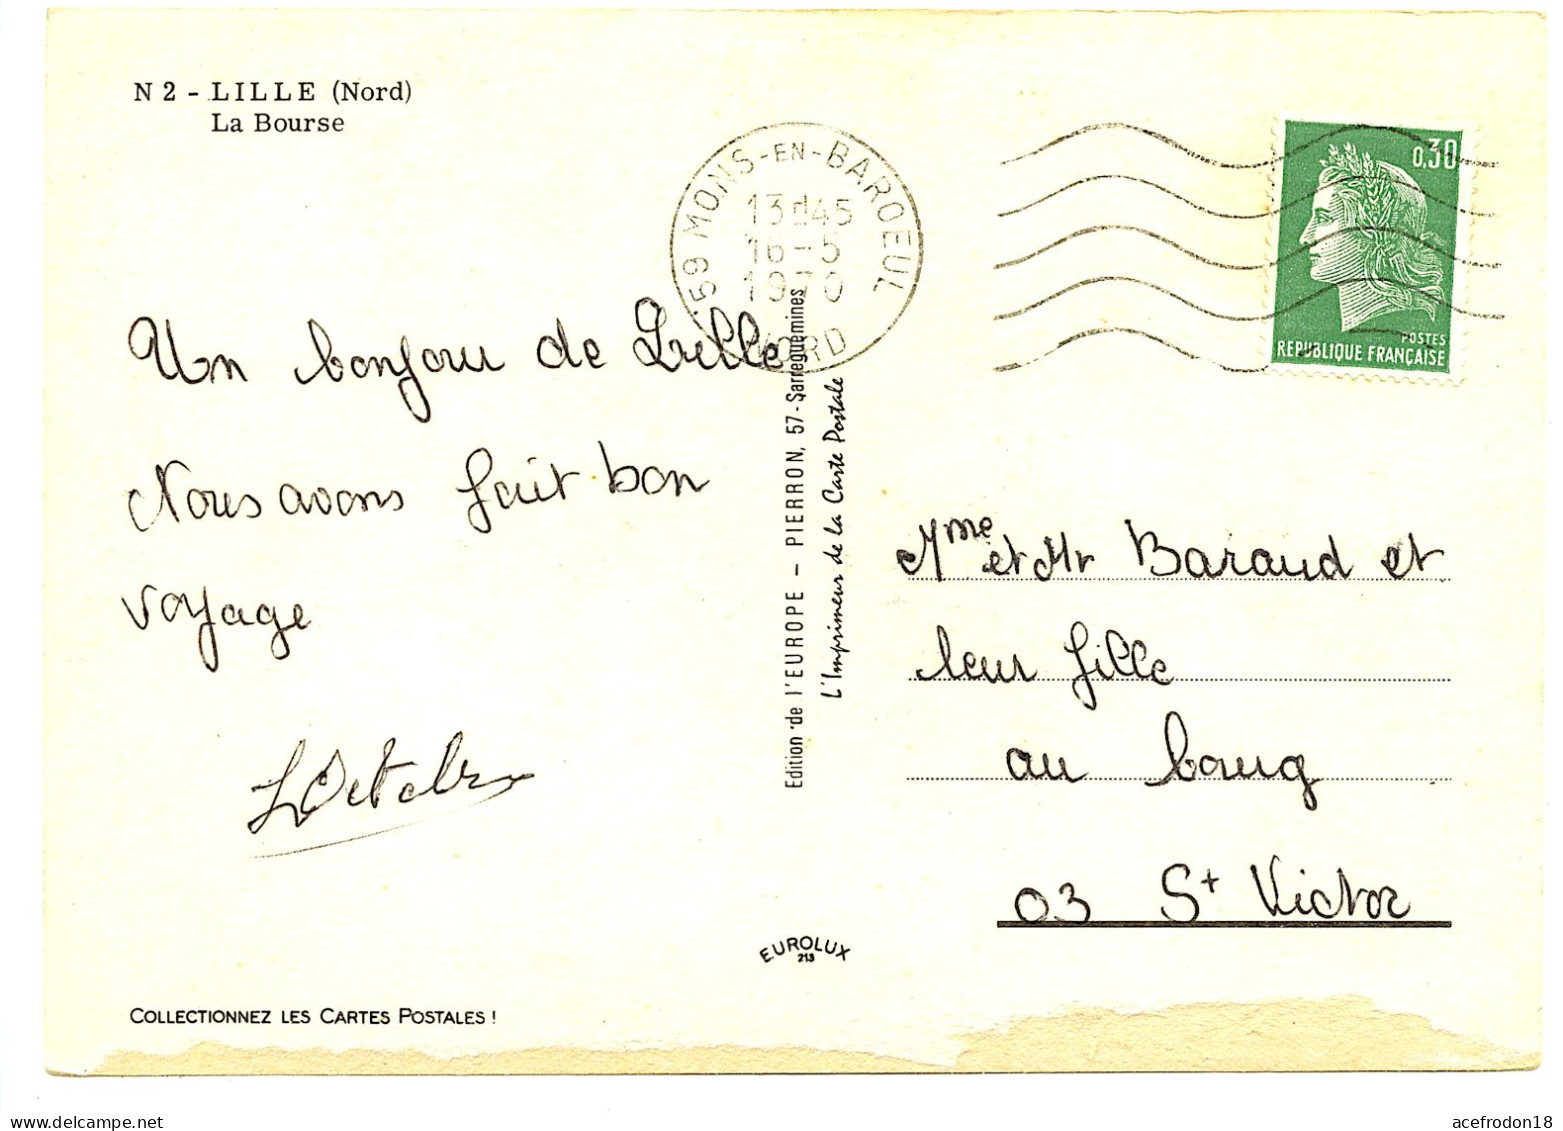 N 2 - LILLE (Nord)
La Bourse
59 MONS-EN-BAROEUL
13H45
16-5
1970
NORD
0,30
POSTES
REPUBLIQUE FRANÇAISE
Un bonjour de Lille
Nous avons fait bon
voyage
Edition de l'EUROPE - PIERRON, 57-Sarreguemines
L'Imprimeur de la Carte Postale
Mme et Mr Baraud et
leur fille
au bourg
03 St Victor
EUROLUX
213
COLLECTIONNEZ LES CARTES POSTALES !
acefrodon18